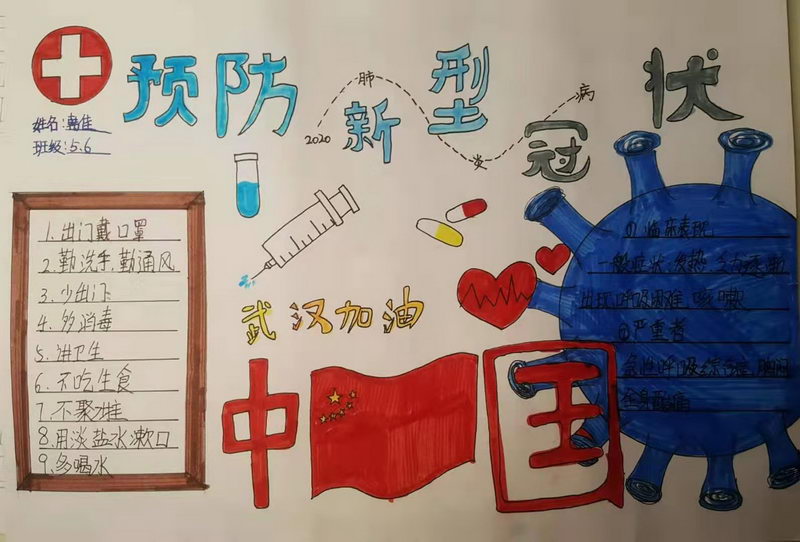 预防新型冠状
2020 肺炎病
姓名:
班级:5.6
武汉加油
1.出门戴口罩
2.勤洗手,勤通风
3.少出门
4.多消毒
5.讲卫生
6.不吃生食
7.不聚堆
8.用淡盐水漱口
9.多喝水
中国
①临床表现
一般症状:发热 乏力
出现呼吸困难,咳嗽
②严重者
急性呼吸综合症